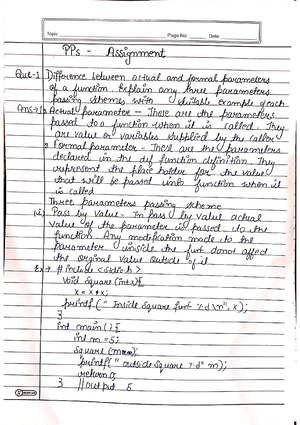 Topic Page No. Date
PPs - Assignment
Que-1 Difference between actual and formal parameters
of a function. Explain any three parameters
passing schemes with suitable example of each
Ans→ 1. Actual parameter - These are the parameters
passed to a function when it is called. They
are value or variables supplied by the caller
2. Formal parameter - These are the parameters
declared in the def function definition. They
represent the place holder for the value
that will be passed into function when it
is called
Three parameters passing scheme
(i) Pass by Value - In pass by value actual
value of the parameter is passed to the
function. Any modification made to the
parameter inside the funt donot affect
the original value outside of it
Ex→ #include <stdio.h>
Void Square (int x){
x = x*x;
printf (" Inside Square funt %d \n", x);
}
int main () {
int m = 5;
Square (m);
printf(" outside Square %d" m);
return 0
} //output 5